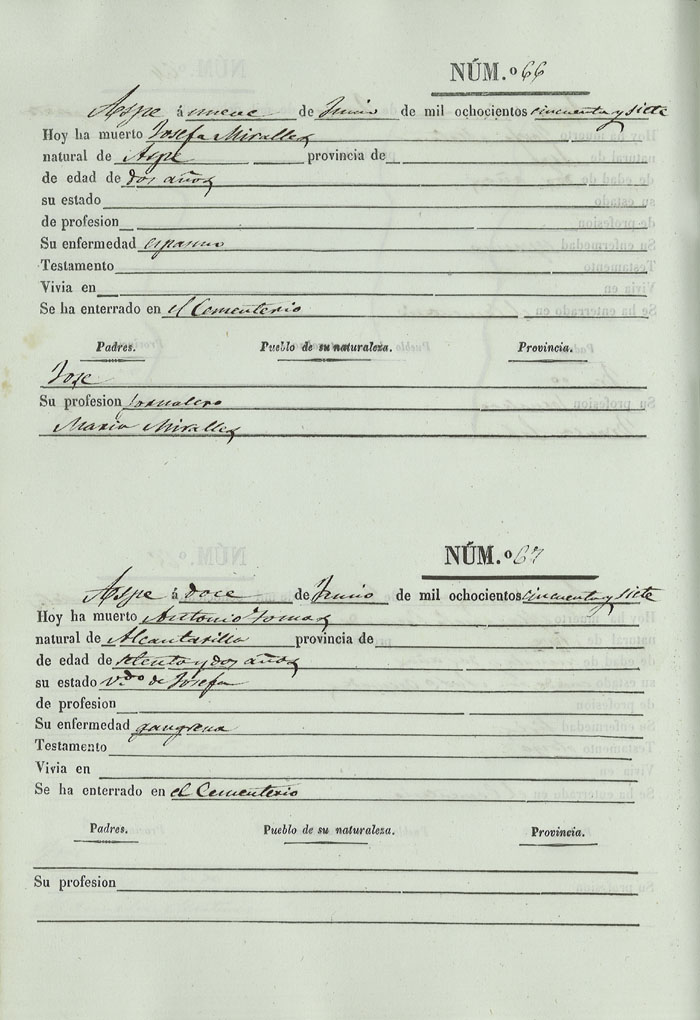 NÚM.º 66
Aspe á nueve de Junio de mil ochocientos cincuenta y siete
Hoy ha muerto Josefa Miralles
natural de Aspe provincia de
de edad de dos años
su estado
de profesion
Su enfermedad espasmo
Testamento
Vivia en
Se ha enterrado en el Cementerio
Padres. Pueblo de su naturaleza. Provincia.
Jose
Su profesion jornalero
Maria Miralles
NÚM.º 67
Aspe á doce de Junio de mil ochocientos cincuenta y siete
Hoy ha muerto Antonio Tomas
natural de Alcantarilla provincia de
de edad de setenta y dos años
su estado v.do de Josefa
de profesion
Su enfermedad gangrena
Testamento
Vivia en
Se ha enterrado en el Cementerio
Padres. Pueblo de su naturaleza. Provincia.
Su profesion